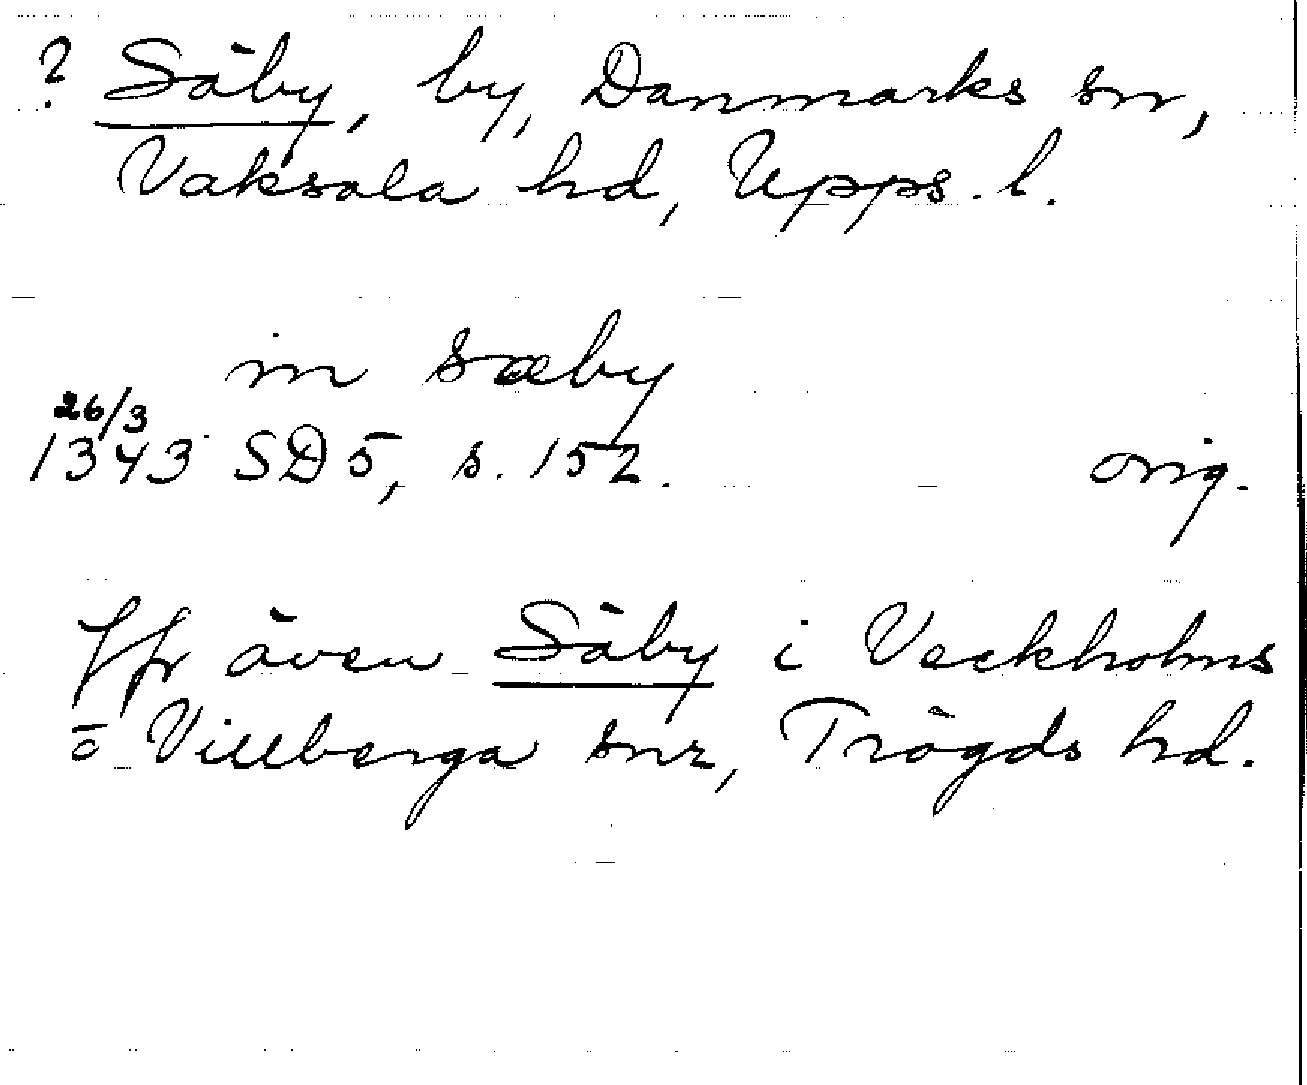 ? Säby, by, Danmarks sn,
Vaksala hd, Upps. l.
in sæby
26/3
1343 SD 5, s. 152. orig.
Jfr även Säby i Veckholms
o Villberga snr, Trögds hd.